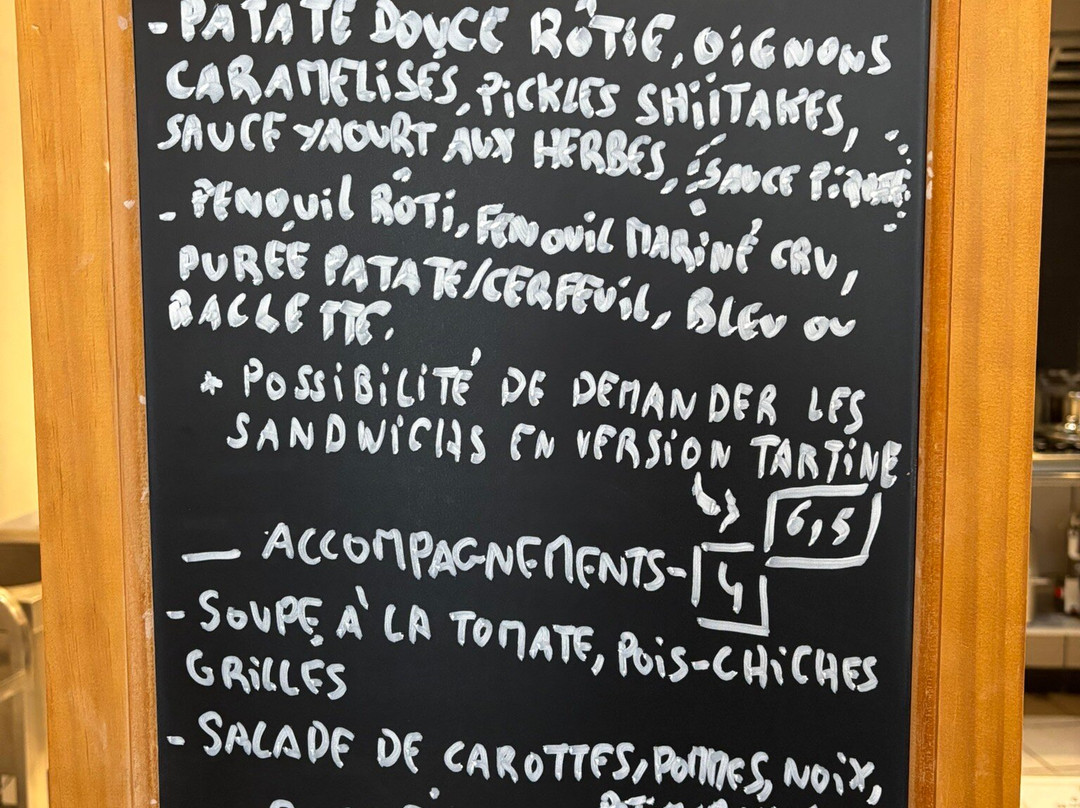 - PATATE DOUCE RÔTIE, OIGNONS
CARAMELISÉS, PICKLES SHIITAKES,
SAUCE YAOURT AUX HERBES, SAUCE PIQUANTE
- FENOUIL RÔTI, FENOUIL MARINÉ CRU,
PURÉE PATATE/CERFEUIL, BLEU OU
RACLETTE.
* POSSIBILITÉ DE DEMANDER LES
SANDWICHS EN VERSION TARTINE
6,5
— ACCOMPAGNEMENTS - 4
- SOUPE À LA TOMATE, POIS-CHICHES
GRILLÉS
- SALADE DE CAROTTES, POMMES, NOIX,